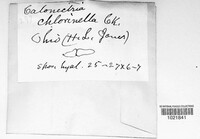 Calonectria
chlorinella Ck.
Ohio (H. L. Jones)
Spor. hyal. 25-27x6-7
1021841